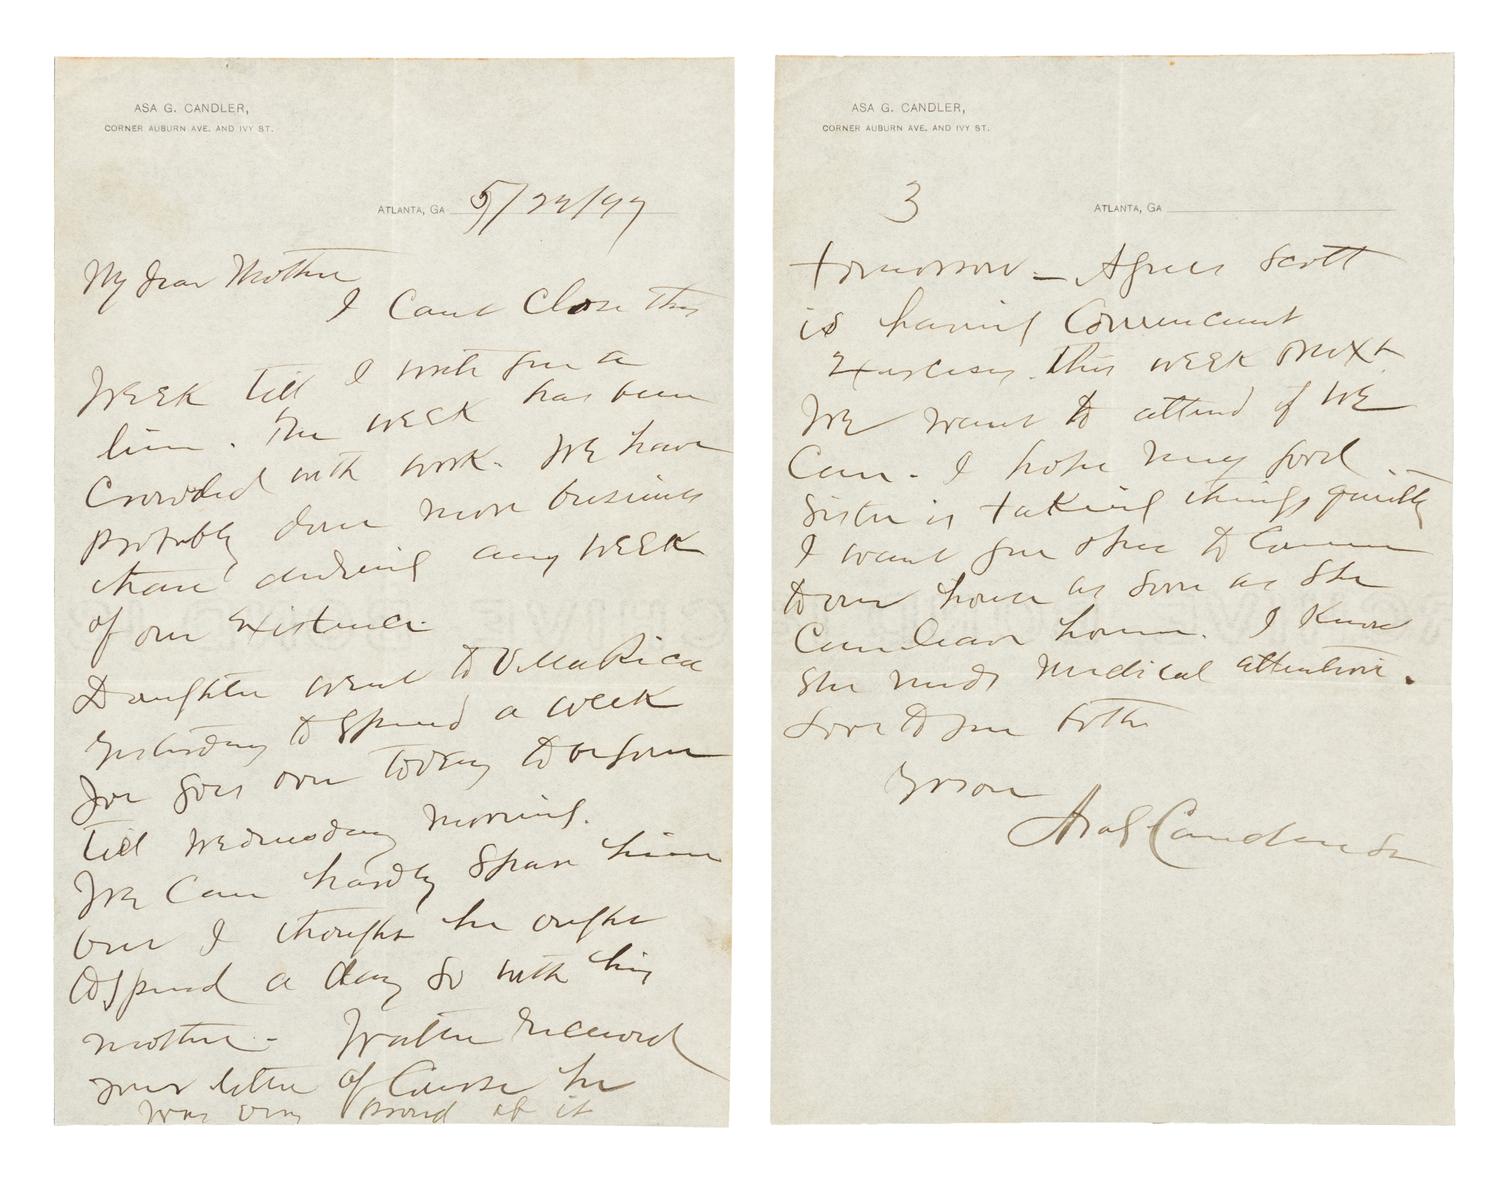 ASA G. CANDLER,
CORNER AUBURN AVE. AND IVY ST.
ATLANTA, GA 5/29/97
My dear Mother
I Cant Close this
WEEK till I write you a
line. The WEEK has been
Crowded with work. WE have
probably done more business
than during any WEEK
of our Existence.
Daughter went to Villa Rica
yesterday to spend a week
Joe goes over today to be gone
till Wednesday morning.
We Can hardly spare him
but I thought he ought
to spend a day so with his
mother - Walter received
your letter of Course he
was very proud of it
ASA G. CANDLER,
CORNER AUBURN AVE. AND IVY ST.
3
ATLANTA, GA
tomorrow - Agnes Scott
is having Commencement
Exercises this WEEK next
WE want to attend if WE
Can. I hope my good
Sister is taking things quietly
I want you & her to Come
to our house as soon as she
Can leave home. I know
she needs medical attention.
Love to you both
Yr son
Asa G Candler Sr